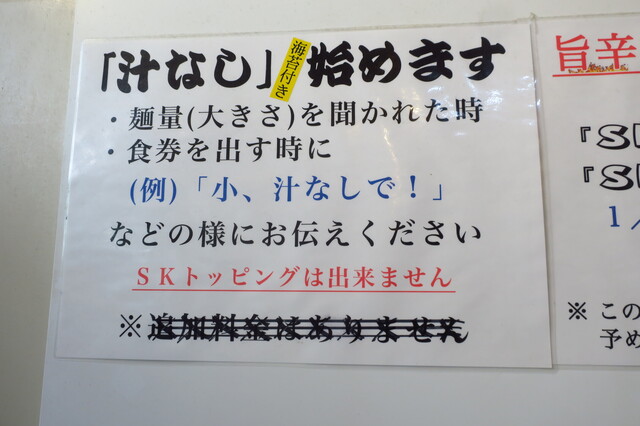 「汁なし」始めます
海苔付き
・麺量(大きさ)を聞かれた時
・食券を出す時に
(例)「小、汁なしで！」
などの様にお伝えください
SKトッピングは出来ません
※追加料金はありません
旨辛
『S
『S
1/
※ この
予め